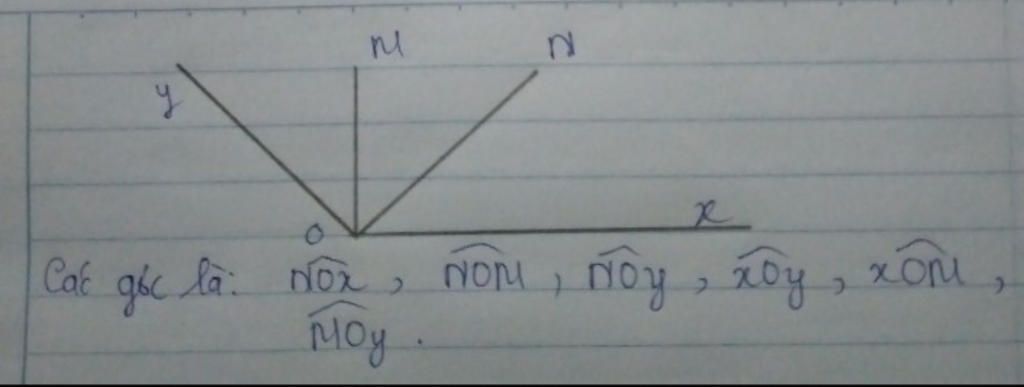 M N
y
x
O
Các góc là: NOx, NOM, NOy, xOy, xOM,
MOy.